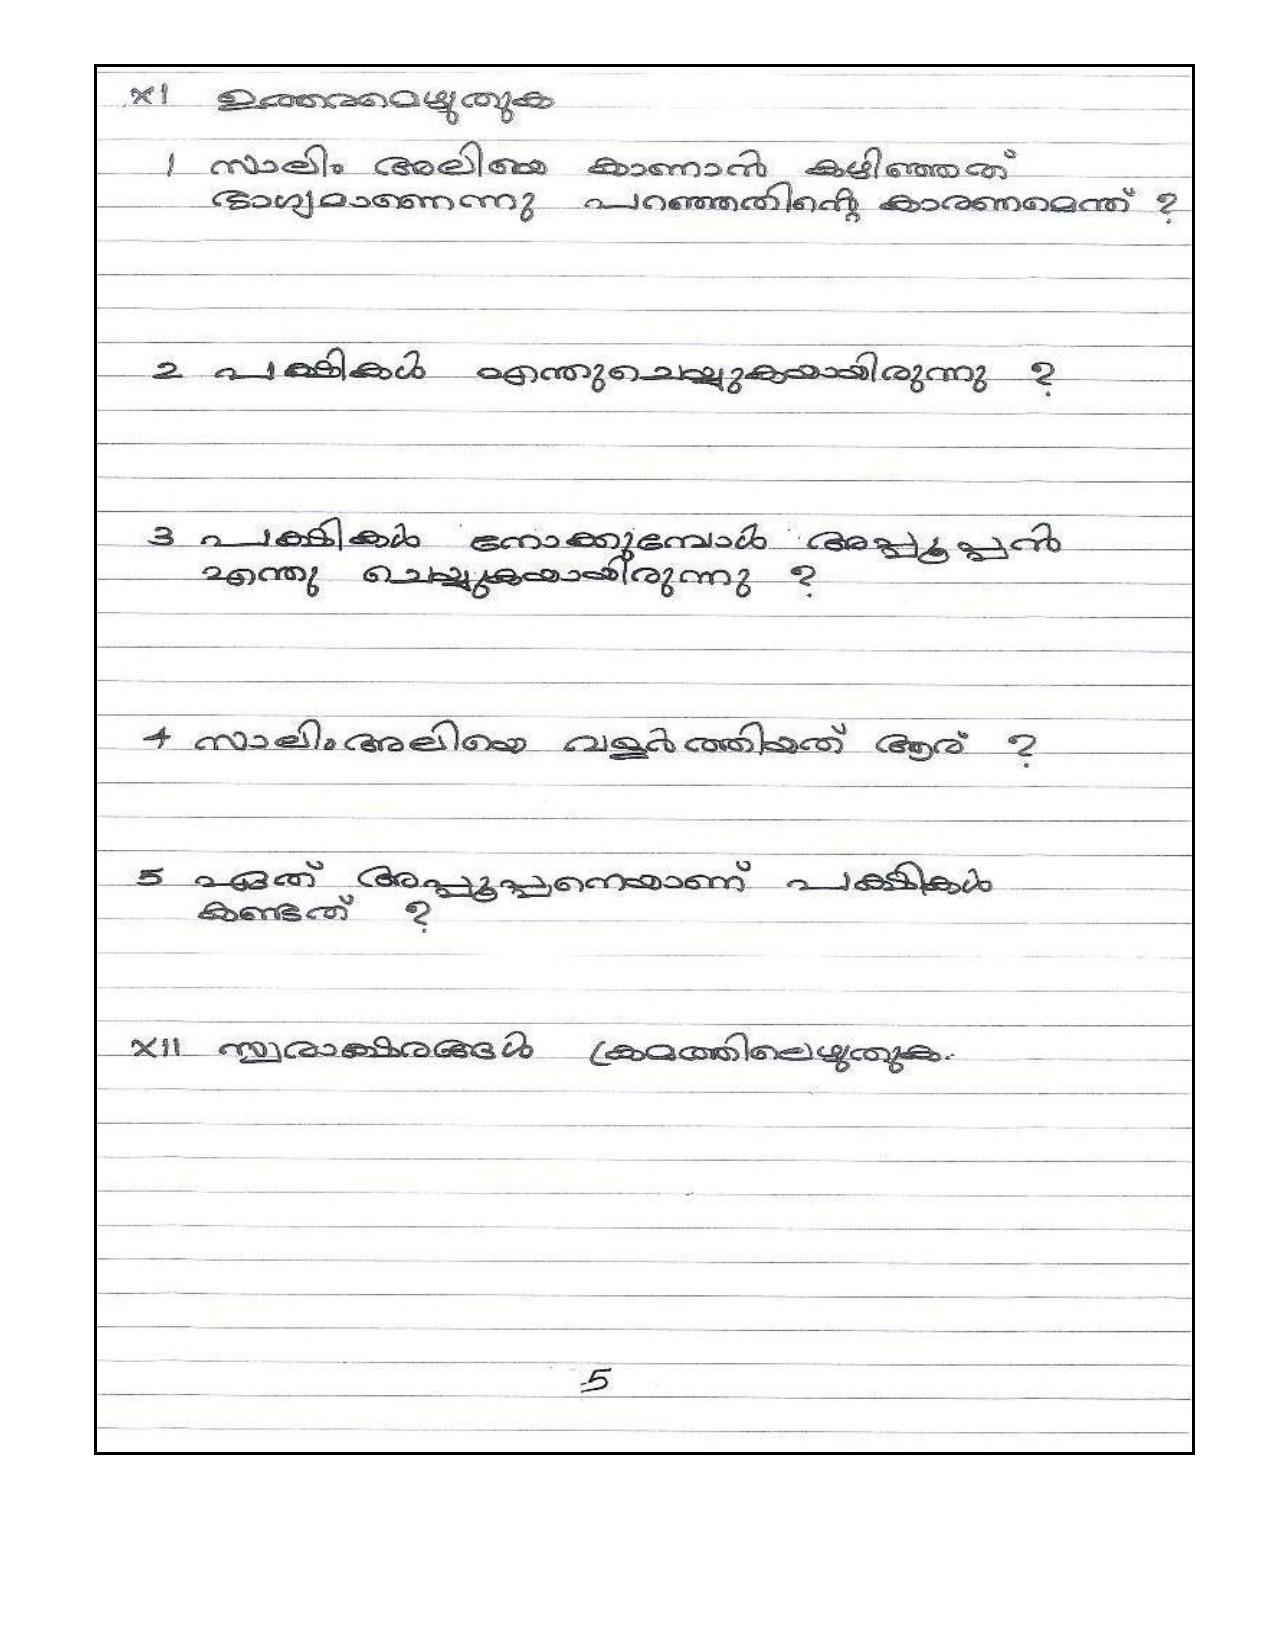 XI ഉത്തരമെഴുതുക
1 സാലിം അലിയെ കാണാൻ കഴിഞ്ഞത്
ഭാഗ്യമാണെന്നു പറഞ്ഞതിന്റെ കാരണമെന്ത് ?
2 പക്ഷികൾ എന്തുചെയ്യുകയായിരുന്നു ?
3 പക്ഷികൾ നോക്കുമ്പോൾ അപ്പൂപ്പൻ
എന്തു ചെയ്യുകയായിരുന്നു ?
4 സാലിംഅലിയെ വളർത്തിയത് ആര് ?
5 ഏത് അപ്പൂപ്പനെയാണ് പക്ഷികൾ
കണ്ടത് ?
XII സ്വരാക്ഷരങ്ങൾ ക്രമത്തിലെഴുതുക.
5